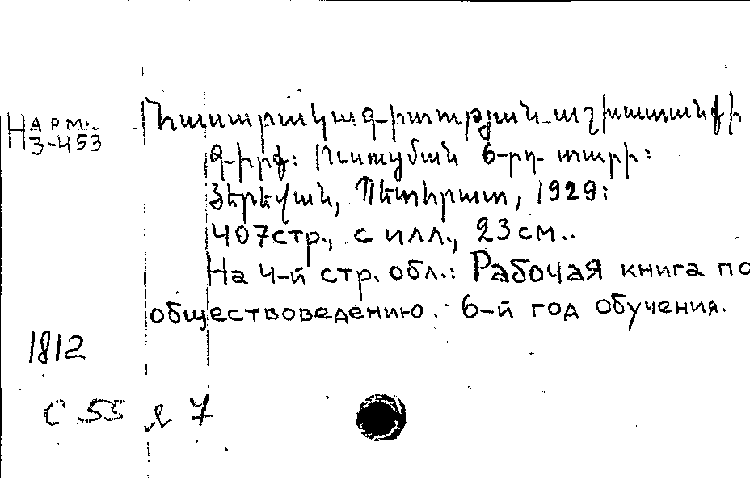 Н арм.
3-453
Հասարակագիտության աշխատանքի
գիրք: Ուսուցման 6-րդ տարի:
Յերեվան, Պետհրատ, 1929:
407стр., с илл., 23см..
На 4-й стр. обл.: Рабочая книга по
обществоведению. 6-й год обучения.
1812
С 55 7